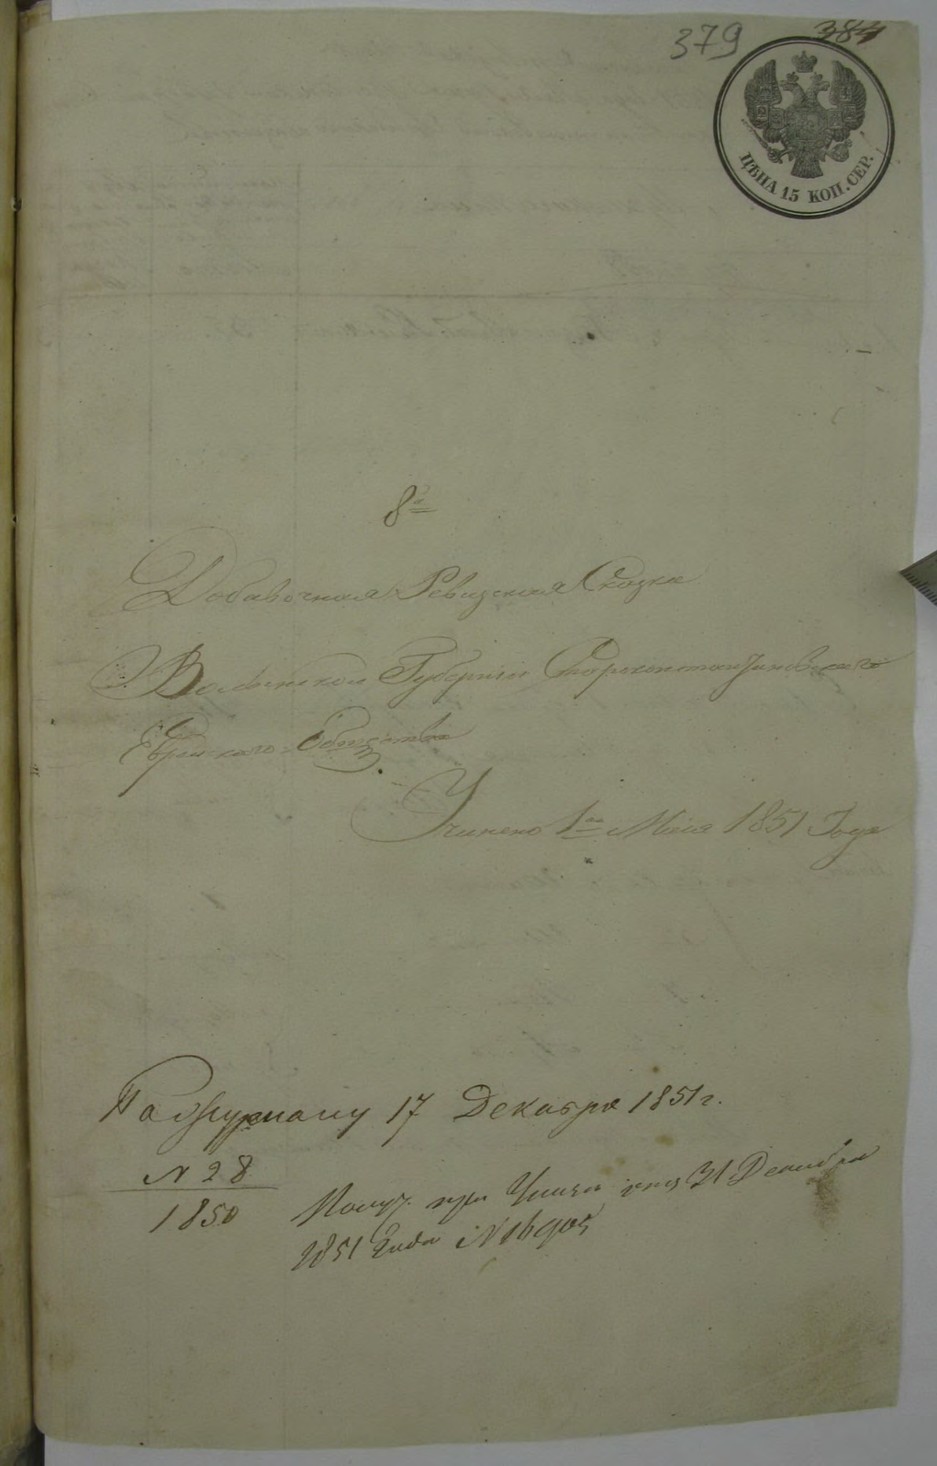 379 384
ЦѢНА 15 КОП. СЕР.
8я
Добавочная Ревизская Сказка
Волынской Губернии Староконстантиновского
Еврейского Общества
Учинена 1го Мая 1851 Года
По Журналу 17 Декабря 1851 г.
N 28
1850
Получ. при Указе 31 Декабря
1851 Года N 16905